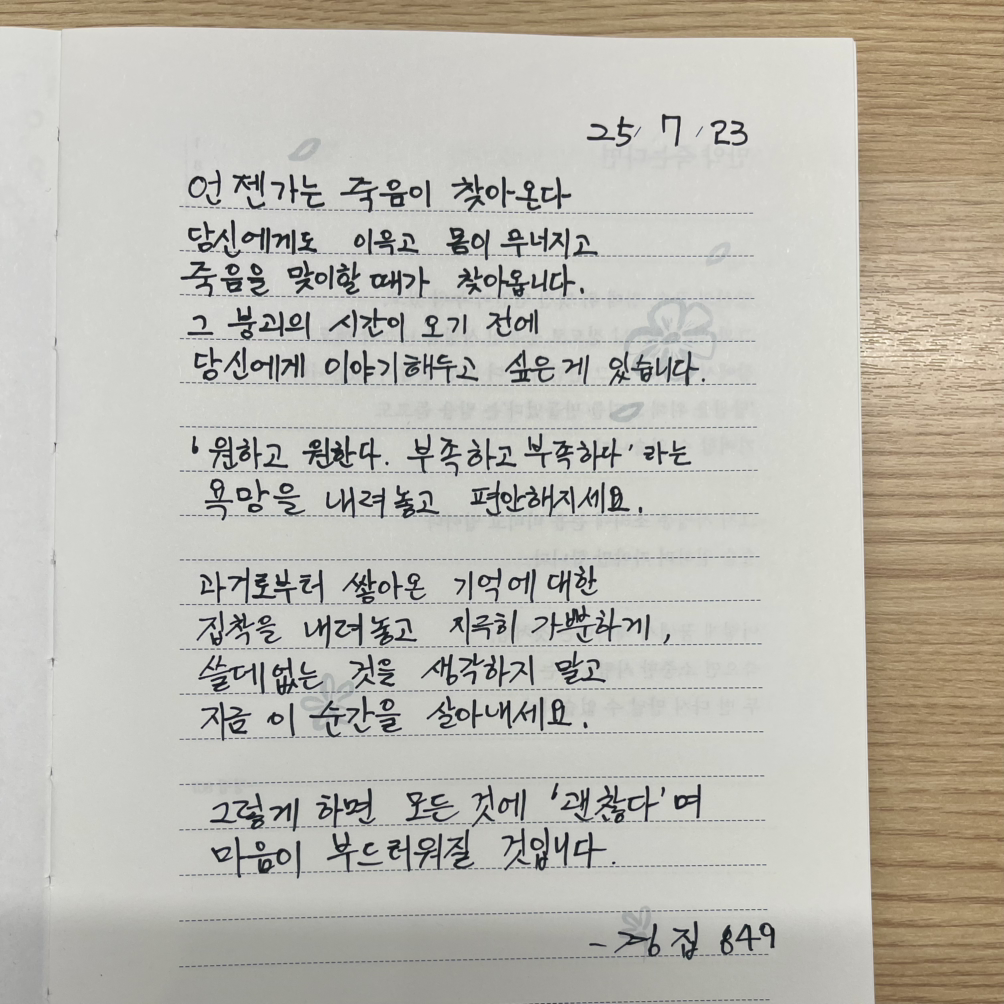 25/ 7 / 23
언젠가는 죽음이 찾아온다
당신에게도 이윽고 몸이 무너지고
죽음을 맞이할 때가 찾아옵니다.
그 붕괴의 시간이 오기 전에
당신에게 이야기해두고 싶은 게 있습니다.
'원하고 원한다. 부족하고 부족하다'라는
욕망을 내려놓고 편안해지세요.
과거로부터 쌓아온 기억에 대한
집착을 내려놓고 지극히 가뿐하게,
쓸데없는 것을 생각하지 말고
지금 이 순간을 살아내세요.
그렇게 하면 모든 것에 '괜찮다'며
마음이 부드러워질 것입니다.
- 경집 849